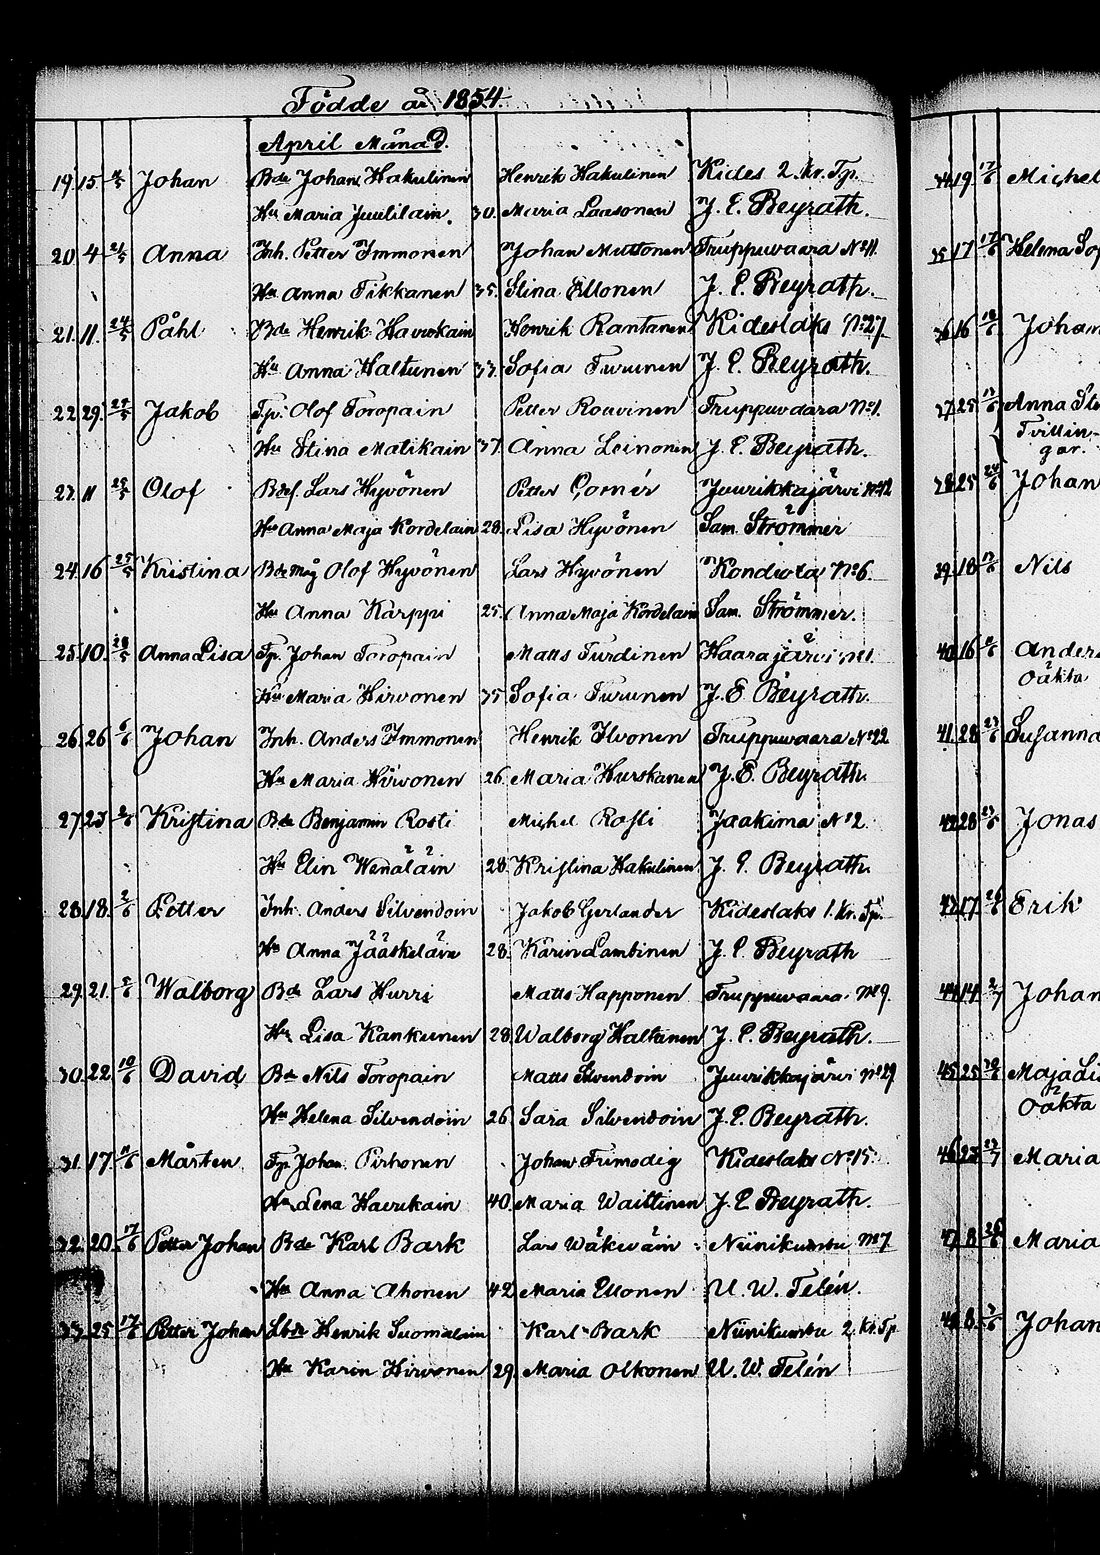 Födde år 1854
April Månad.
19. 15. Johan Bde Johan Hakulinen Henrik Hakulinen Kides 2. Kr. Tp.
Hu Maria Juulilain. 30. Maria Laasonen J. E. Beyrath.
20. 4. 21/5 Anna Inh. Petter Immonen Johan Muttonen Truppuvaara No 11.
Hu Anna Tikkanen 35. Stina Ellonen J. E. Beyrath.
21. 11. 24/5 Påhl Bde Henrik Havrikain Henrik Rantanen Kideslaks No 27
Hu Anna Haltunen 33. Sofia Turunen J. E. Beyrath.
22. 29. Jakob Tp. Olof Toropain Petter Rouvinen Truppuvaara No 1.
Hu Stina Matikain 37. Anna Leinonen J. E. Beyrath.
23. 11 25/5 Olof Bdef Lars Hyvönen Petter Gornér Juurikkajärvi No 12
Hu Anna Maja Kordelain 28. Lisa Hyvönen Sam. Strömmer
24. 16 25/5 Kristina Bde Olof Hyvönen Lars Hyvönen Kondiota No 6.
Hu Anna Karppi 25. Anna Maja Kordelain Sam. Strömmer.
25. 10. 28/5 Anna Lisa Tp. Johan Toropain Matts Turdinen Haarajärvi No 1.
Hu Maria Hirvonen 35 Sofia Turunen J. E. Beyrath.
26. 26 6/6 Johan Inh. Anders Immonen Henrik Ilvonen Truppuvaara No 22
Hu Maria Hirvonen 26 Maria Hurskanen J. E. Beyrath.
27. 23 Kristina Bde Benjamin Rosti Michel Rosti Jaakima No 2.
Hu Elin Wenäläin 28. Kristina Hakulinen J. E. Beyrath.
28. 18. 2/6 Petter Inh. Anders Silvendoin Jakob Gerlander Kideslaks 1. Kr. Tp.
Hu Anna Jääskeläin 28. Karin Lambinen J. E. Beyrath
29. 21. Walborg Bde Lars Hurri Matts Happonen Truppuvaara No 9.
Hu Lisa Kankunen 28. Walborg Haltunen J. E. Beyrath.
30. 22 10/6 David Bde Nils Toropain Matts Silvendoin Juurikkajärvi No 29
Hu Helena Silvendoin 26 Sara Silvendoin J. E. Beyrath.
31. 17. 11/6 Mårten Tp. Johan Pirhonen Johan Frimodig Kideslaks No 15.
Hu Lena Havrikain 40. Maria Waittinen J. E. Beyrath.
32. 20. 17/6 Petter Johan Bde Karl Bark Lars Wäkeväin Niinikumbu No 7
Hu Anna Ahonen 42. Maria Ellonen U. W. Telén.
33. 25 17/6 Petter Johan Lbde Henrik Suomalain Karl Bark Niinikumbu 2. Kr. Tp.
Hu Karin Hirvonen 29. Maria Olkonen U. W. Telén
19. Michel
17 Helena Sof
16 Johan
25 Anna Sti
Tvillin-
gar.
25 Johan
18 Nils
40 16 Anders
Oäkta
41. 28 Susanna
28 Jonas
17 Erik
14 Johan
45 25 Maja Li
Oäkta
46 23 Maria
47 8 Maria
8. Johan